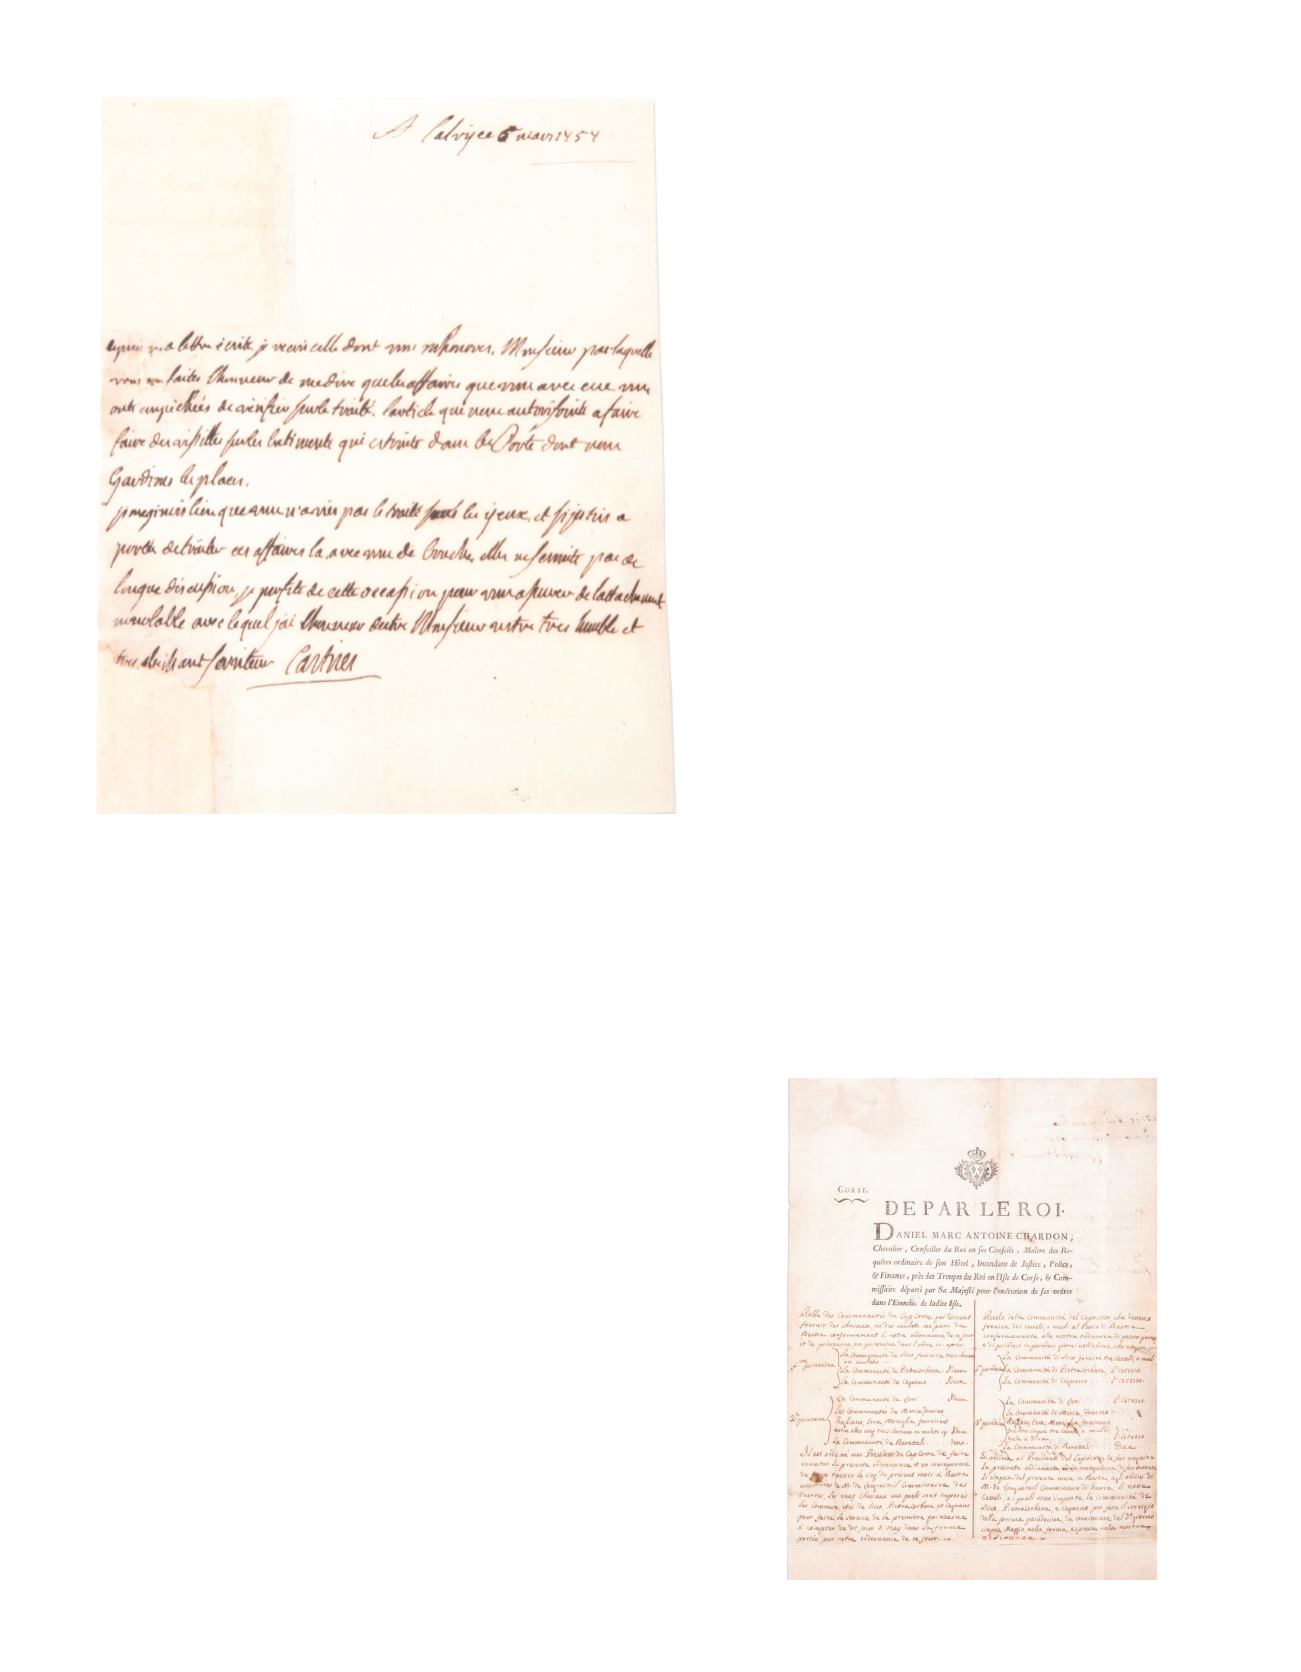 A Calvy ce 6 mars 1754
lettre écrite je recois celle dont vous mhonores, Monsieur par laquelle
vous me faites lhonneur de me dire que les affaires que vous avec eue vous
ont empechées de verifier sur le traité, larticle qui nous autorisoit a faire
faire des visittes sur les batiments qui etoient dans les Ports dont nous
Gardions les places.
jmaginois bien que vous n'avies pas le traité sous les yeux, et si jetois a
portée de traiter ces affaires la avec vous de bouche, elles ne seroient pas de
longue discussion, je profite de cette occassion pour vous assurer de lattachement
inviolable avec lequel jai lhonneur detre Monsieur votre tres humble et
tres obeissant serviteur Castries
CORSE.
DE PAR LE ROI.
DANIEL MARC ANTOINE CHARDON,
Chevalier, Conseiller du Roi en ses Conseils, Maître des Re-
quêtes ordinaire de son Hôtel, Intendant de Justice, Police,
& Finance, près des Troupes du Roi en l'Isle de Corse, & Com-
missaire départi par Sa Majesté pour l'exécution de ses ordres
dans l'Etendue de ladite Isle.
Rolle des Communautés du Cap Corse qui doivent
fournir des Chevaux, ou des mulets au parc de
Bastia conformement à notre ordonnance de ce jour
et de quinzaine en quinzaine dans l'ordre ci-après.
1re quinzaine
La Communauté de Sisco fournira trois chevaux
ou mulets
La Communauté de Pietracorbara. Idem
La Communauté de Cagnano.... Idem.
2e quinzaine
La Communauté de Luri...... Idem
Les Communautés de Meria, Tomino
Rogliano, Ersa, Morsiglia fourniront
entre elles cinq trois chevaux ou mulets cy. Idem
La Communauté de Barettali.... deux.
Il est ordonné aux Presidents du Cap Corse de faire
executer la presente ordonnance et en consequence
de faire trouver le cinq du présent mois à Bastia
aux ordres de M. de Commissaire des
Guerres, les neuf Chevaux aux quels sont imposés
les Communautés de Sisco, Pietracorbara et Cagnano
pour faire le service de la première quinzaine
à compter du dit jour 5 May dans la forme
portée par notre ordonnance de ce jour.
Ruolo, delle Communità del Capocorso che devono
fornire dei Cavalli, o muli al Parco di Bastia
conformamente alla nostra ordinanza di questo giorno
La Communità di Sisco fornirà tre Cavalli, o muli
La Communità di Pietracorbara. L'istesso
La Communità di Cagnano.... L'istesso.
La Communità di Luri...... L'istesso.
La Communità di Meria, Tomino
Rogliano, Ersa, Morsiglia forniranno
fra loro cinque tre cavalli o muli
L'istesso
La Communità di Barettali.... Due
Si ordina ai Presidenti del Capocorso di far eseguire
la presente ordinanza ed in conseguenza di far trovare
li cinque del presente mese in Bastia agli ordini di
M. de Commissario di Guerra, li nove
Cavalli, a i quali sono imposte le Communità di
Sisco, Pietracorbara, e Cagnano per fare il servizio
della prima quindicina, da cominciare dal do giorno
cinque Maggio, nella forma espressa nella nostra
ordinanza